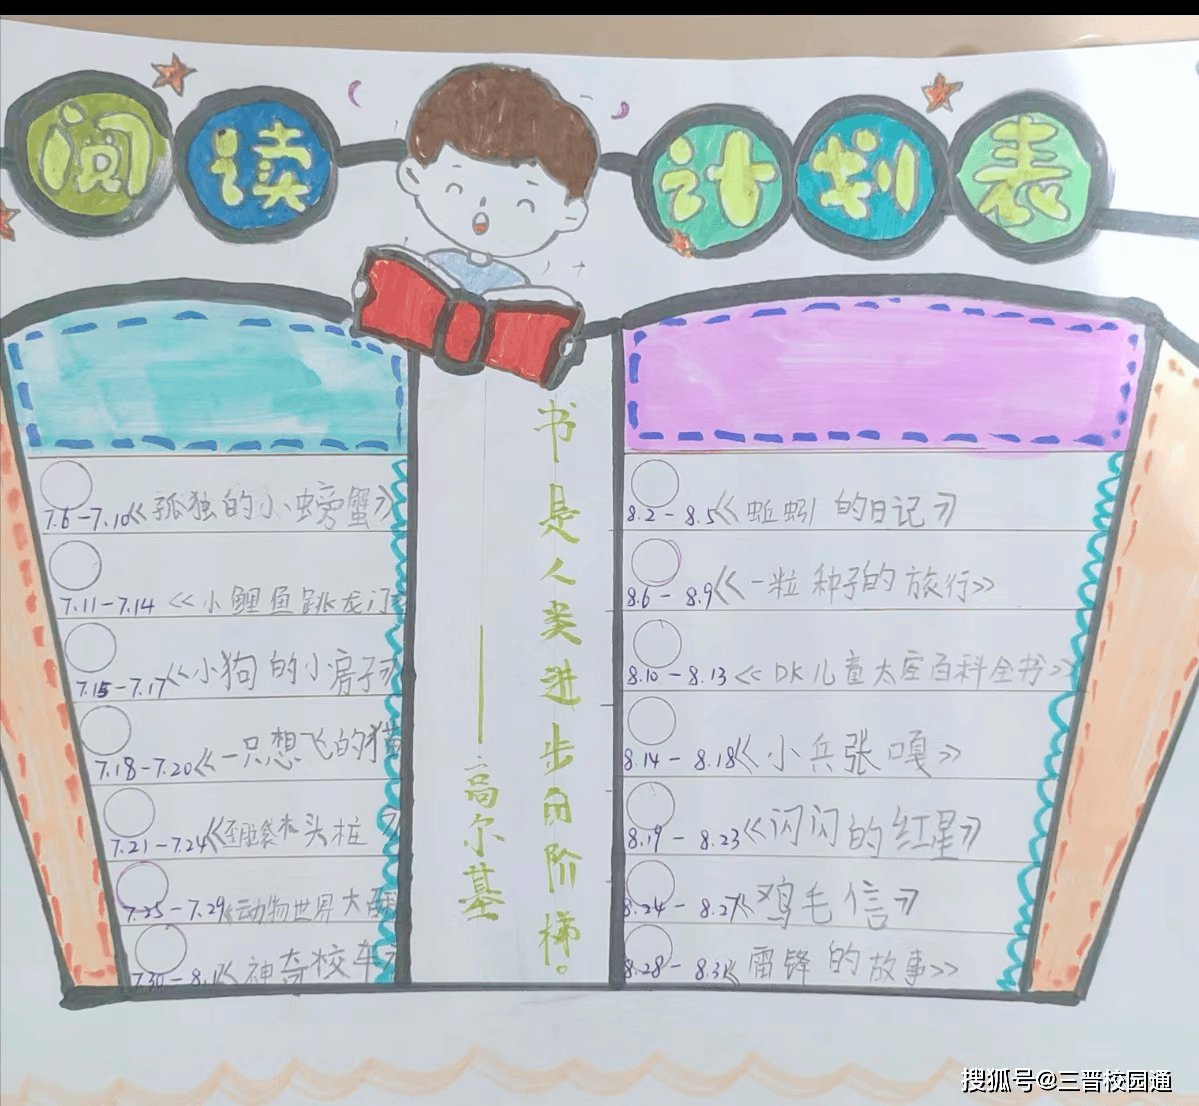 阅读计划表
7.6-7.10《孤独的小螃蟹》
7.11-7.14《小鲤鱼跳龙门
7.15-7.17《小狗的小房子》
7.18-7.20《一只想飞的猫
7.21-7.24《歪脑袋木头桩》
7.25-7.29《动物世界大
7.30-8.1《神奇校车》
书是人类进步的阶梯。
——高尔基
8.2-8.5《蚯蚓的日记》
8.6-8.9《一粒种子的旅行》
8.10-8.13《DK儿童太空百科全书》
8.14-8.18《小兵张嘎》
8.19-8.23《闪闪的红星》
8.24-8.27《鸡毛信》
8.28-8.31《雷锋的故事》
搜狐号@三晋校园通